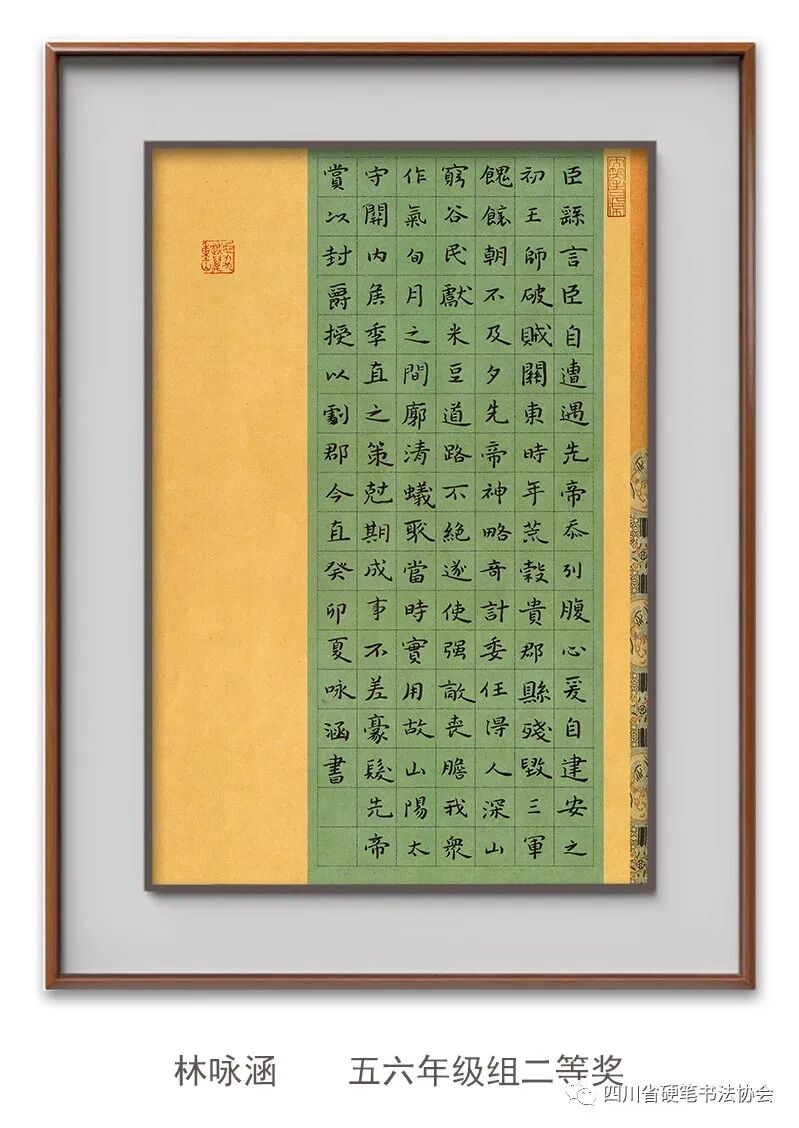 臣繇言臣自遭遇先帝忝列腹心爰自建安之
初王師破賊關東時年荒穀貴郡縣殘毀三軍
餽饟朝不及夕先帝神略奇計委任得人深山
窮谷民獻米豆道路不絕遂使强敵喪膽我衆
作氣旬月之間廓清蟻聚當時實用故山陽太
守關內侯季直之策尅期成事不差豪髮先帝
賞以封爵授以劇郡今直癸卯夏咏涵書
林咏涵 五六年级组二等奖
四川省硬笔书法协会